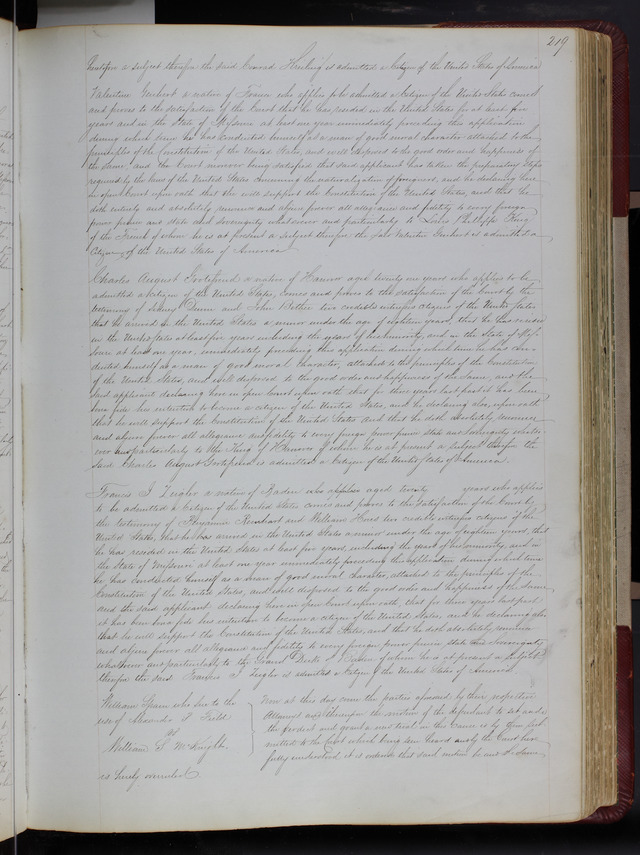 219
therefore the said Conrad Henling is admitted a Citizen of the United States of America
Valentine a native of France who applies to be admitted a Citizen of the United States comes
and proves to the satisfaction of the Court that he has resided in the United States at least five
years and in the State of Missouri at least one year immediately preceding this application
during which time he has conducted himself as a man of good moral character attached to the
principles of the Constitution of the United States, and well disposed to the good order and happiness of
the same, and the Court moreover being satisfied that said applicant has taken the preparatory steps
required by the laws of the United States concerning the naturalization of foreigners, and he declaring here
in open Court upon oath that he will support the Constitution of the United States, and that he
doth entirely and absolutely renounce and abjure forever all allegiance and fidelity to every foreign
power prince and state and sovereignty whatsoever and particularly to Louis Philippe King
of the French of whom he is at present a subject therefore the said Valentine is admitted a
Citizen of the United States of America
Charles August a native of Hanover aged twenty one years who applies to be
admitted a Citizen of the United States, comes and proves to the satisfaction of the Court by the
testimony of Sidney and John two credible witnesses citizens of the United States
that he arrived in the United States a minor under the age of eighteen years, that he has resided
in the United States at least five years including the years of his minority, and in the State of Mis
souri at least one year, immediately preceding this application during which time he has con
ducted himself as a man of good moral character, attached to the principles of the Constitution
of the United States, and well disposed to the good order and happiness of the same, and the
said applicant declaring here in open Court upon oath that for three years last past it has been
bona fide his intention to become a citizen of the United States, and he declaring also upon oath
that he will support the Constitution of the United States and that he doth absolutely renounce
and abjure forever all allegiance and fidelity to every foreign power prince state and sovereignty whatso
ever and particularly to the King of Hanover of whom he is at present a subject therefore the
said Charles August is admitted a Citizen of the United States of America.
Francis J Zeigler a native of Baden who applies aged twenty years who applies
to be admitted a Citizen of the United States comes and proves to the satisfaction of the Court by
the testimony of Reinhart and William two credible witnesses citizens of the
United States, that he has arrived in the United States a minor under the age of eighteen years, that
he has resided in the United States at least five years, including the years of his minority, and in
the State of Missouri at least one year immediately preceding this application during which time
he has conducted himself as a man of good moral character, attached to the principles of the
Constitution of the United States, and well disposed to the good order and happiness of the same
and the said applicant declaring here in open Court upon oath, that for three years last past
it has been bona fide his intention to become a citizen of the United States, and he declaring also
that he will support the Constitution of the United States, and that he doth absolutely renounce
and abjure forever all allegiance and fidelity to every foreign power prince state and sovereignty
whatsoever and particularly to the Grand Duke of Baden of whom he is at present a subject
therefore the said Francis J Zeigler is admitted a Citizen of the United States of America
William who sues to the
use of Alexander S Field
vs
William S. McKnight.
Now at this day come the parties aforesaid by their respective
Attorneys and thereupon the motion of the defendant to set aside
the verdict and grant a new trial in this cause is by them sub
mitted to the Court which being seen heard and by the Court here
fully understood, it is ordered that said motion be and the same
is hereby overruled